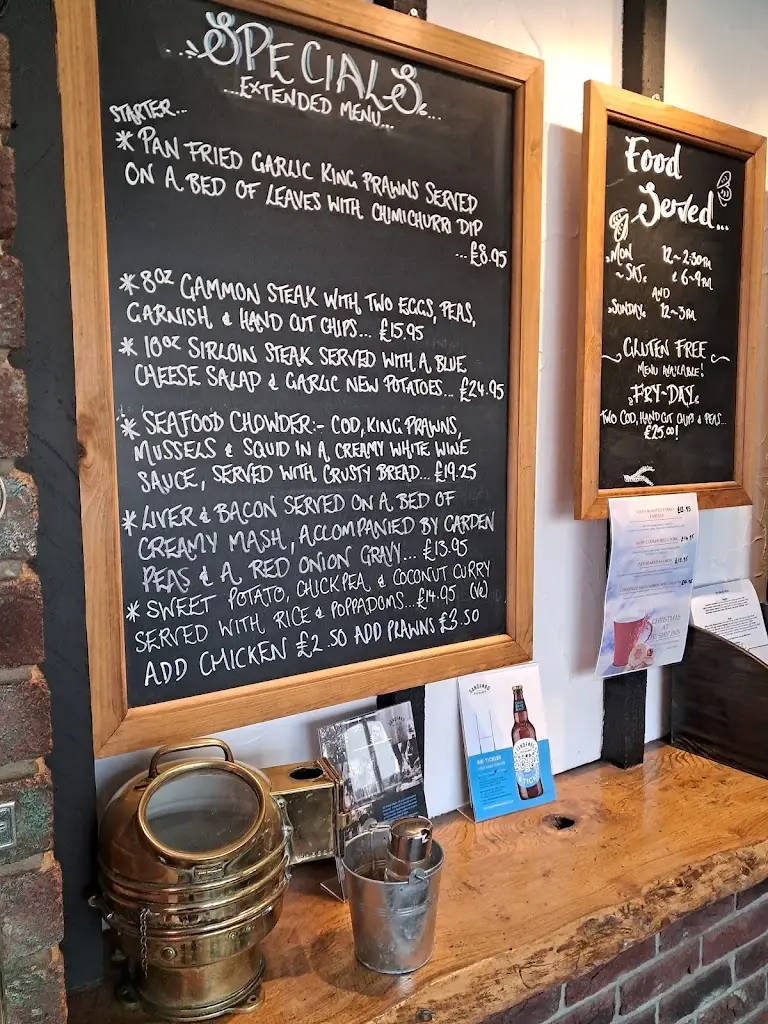 SPECIALS...
...EXTENDED MENU...
STARTER...
* PAN FRIED GARLIC KING PRAWNS SERVED
ON A BED OF LEAVES WITH CHIMICHURRI DIP
...£8.95
* 8OZ GAMMON STEAK WITH TWO EGGS, PEAS,
GARNISH & HAND CUT CHIPS... £15.95
* 10OZ SIRLOIN STEAK SERVED WITH A BLUE
CHEESE SALAD & GARLIC NEW POTATOES... £24.95
* SEAFOOD CHOWDER:- COD, KING PRAWNS,
MUSSELS & SQUID IN A CREAMY WHITE WINE
SAUCE, SERVED WITH CRUSTY BREAD... £19.25
* LIVER & BACON SERVED ON A BED OF
CREAMY MASH, ACCOMPANIED BY GARDEN
PEAS & A RED ONION GRAVY... £13.95
* SWEET POTATO, CHICKPEA, & COCONUT CURRY
SERVED WITH RICE & POPPADOMS... £14.95 (VE)
ADD CHICKEN £2.50 ADD PRAWNS £3.50
Food
Served...
MON 12-2:30PM
~SAT & 6-9PM
AND
SUNDAY 12-3PM
GLUTEN FREE
MENU AVAILABLE!
FRY-DAY
TWO COD, HAND CUT CHIPS & PEAS...
£25.00!
CHRISTMAS
AT